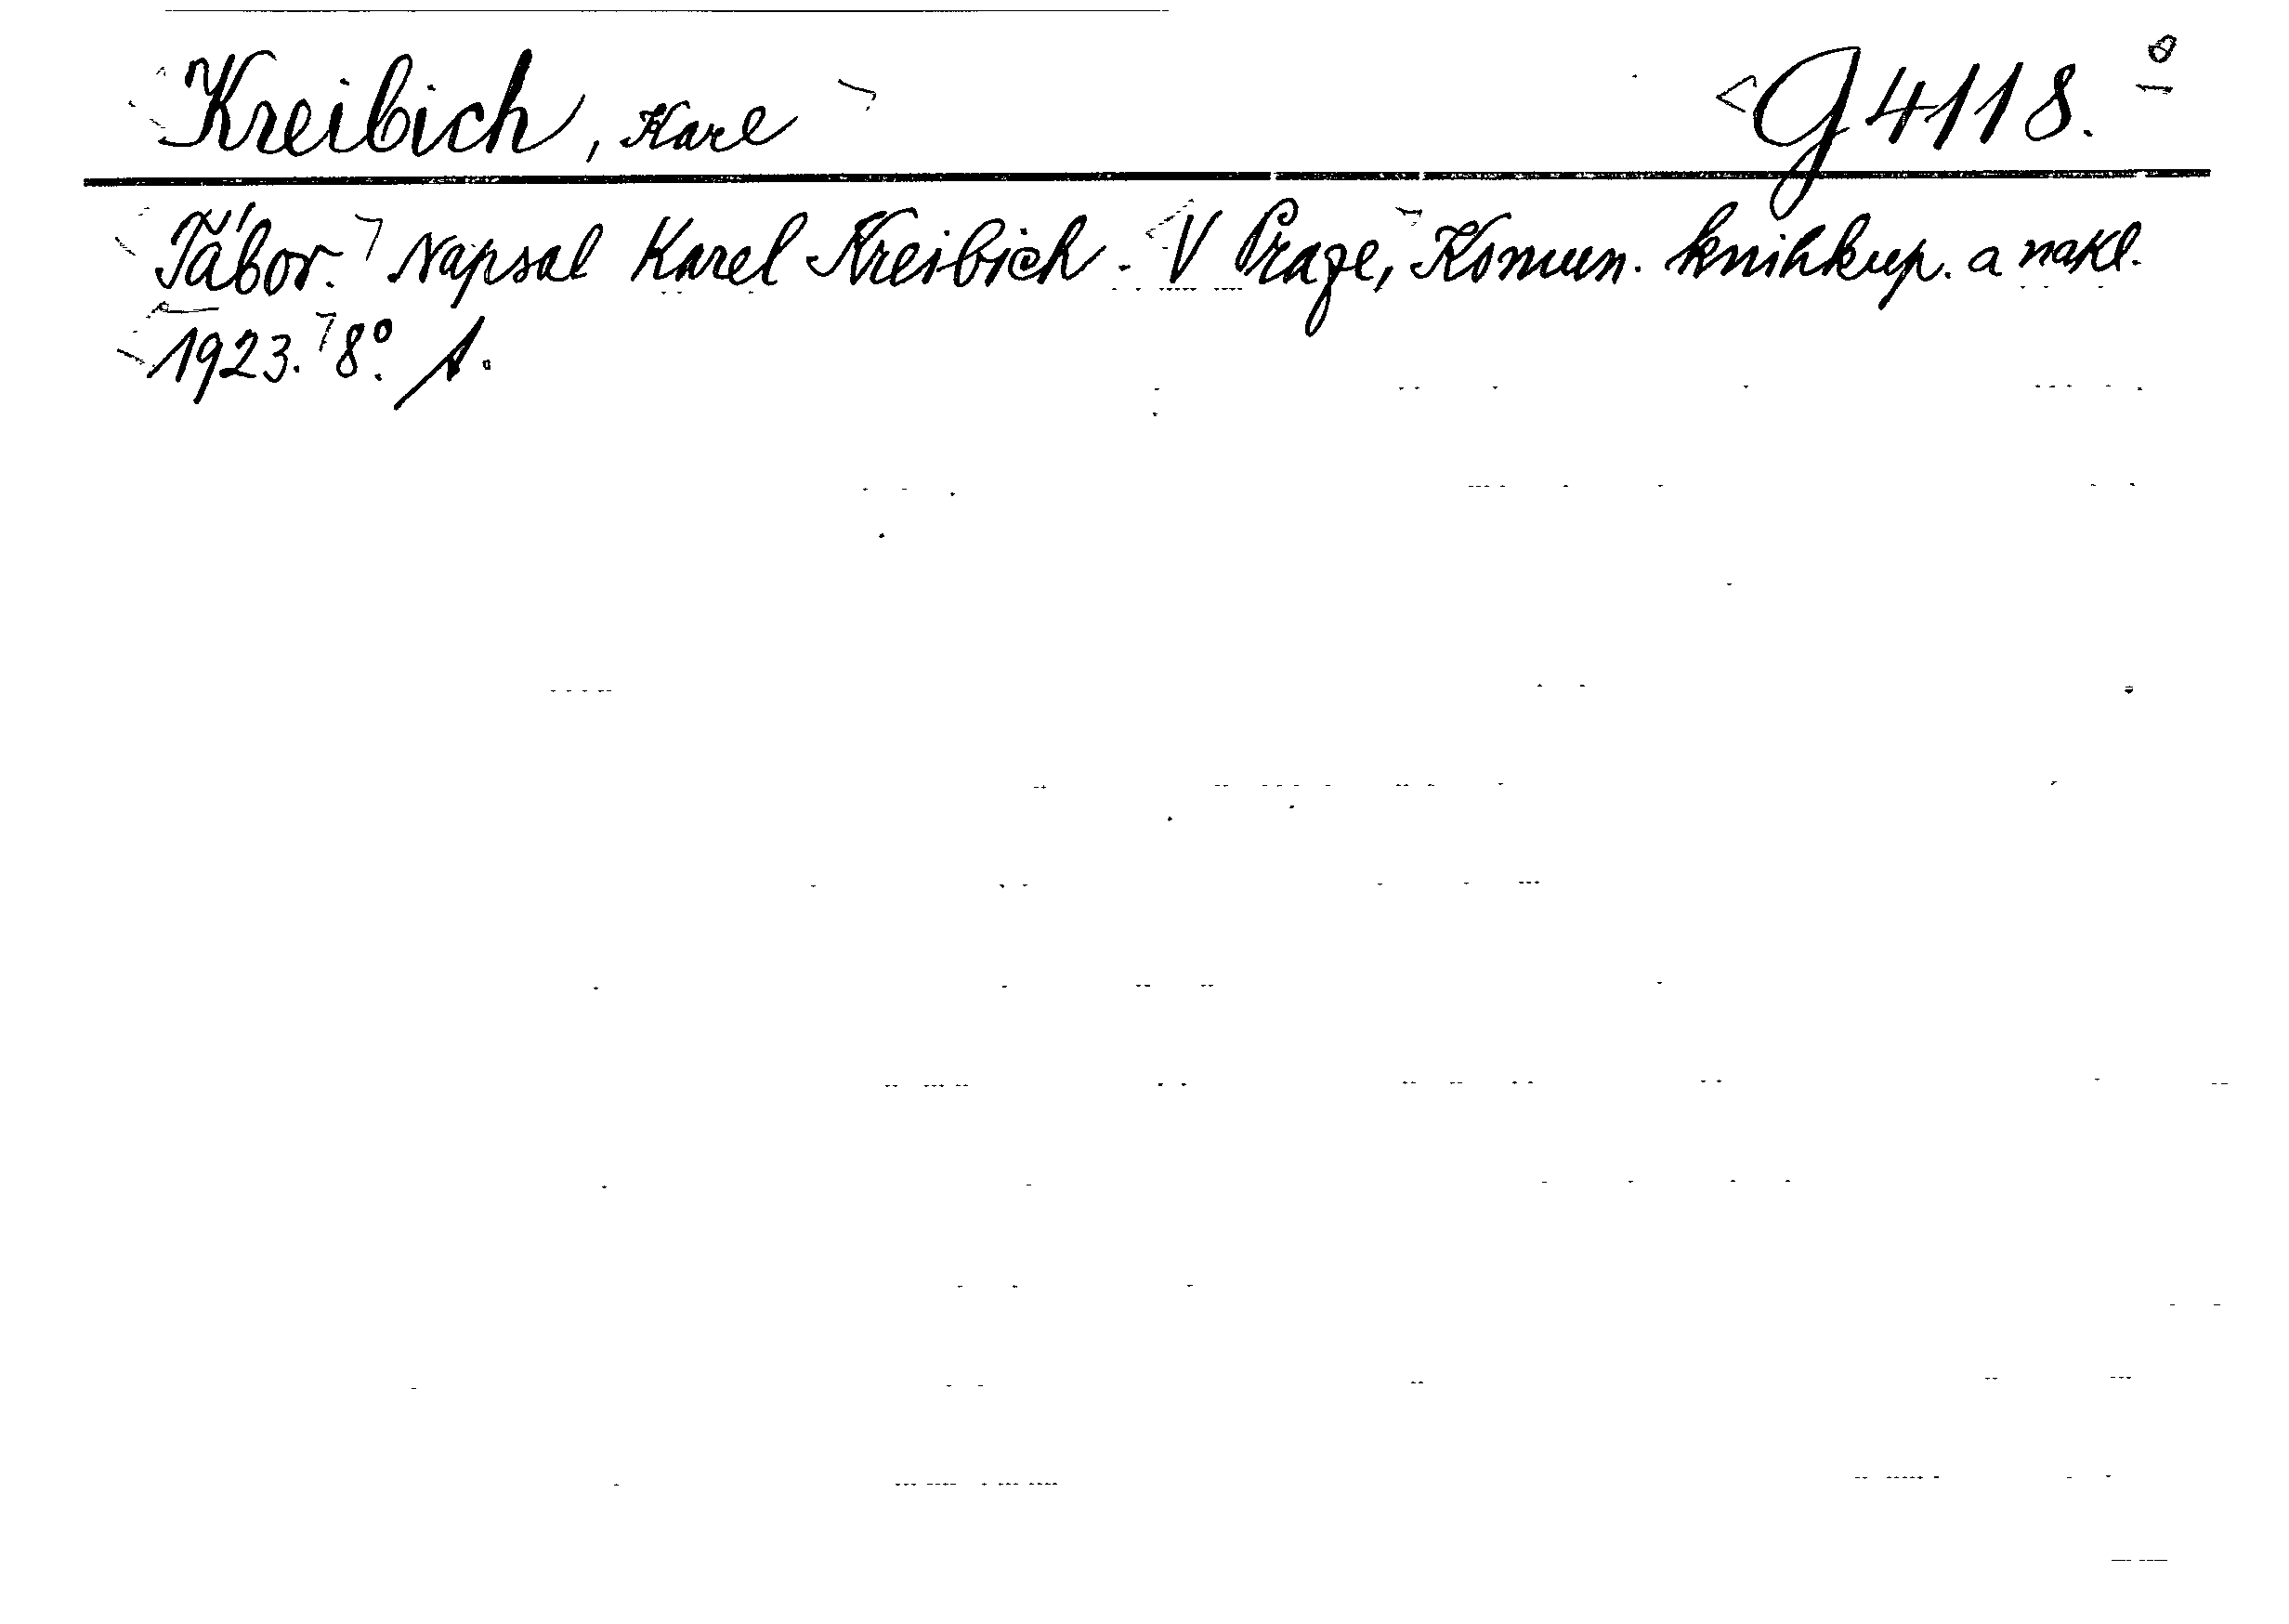 Kreibich, Karel G 4118.
Tábor. Napsal Karel Kreibich. V Praze, Komun. knihkup. a nakl.
1923. 8°.